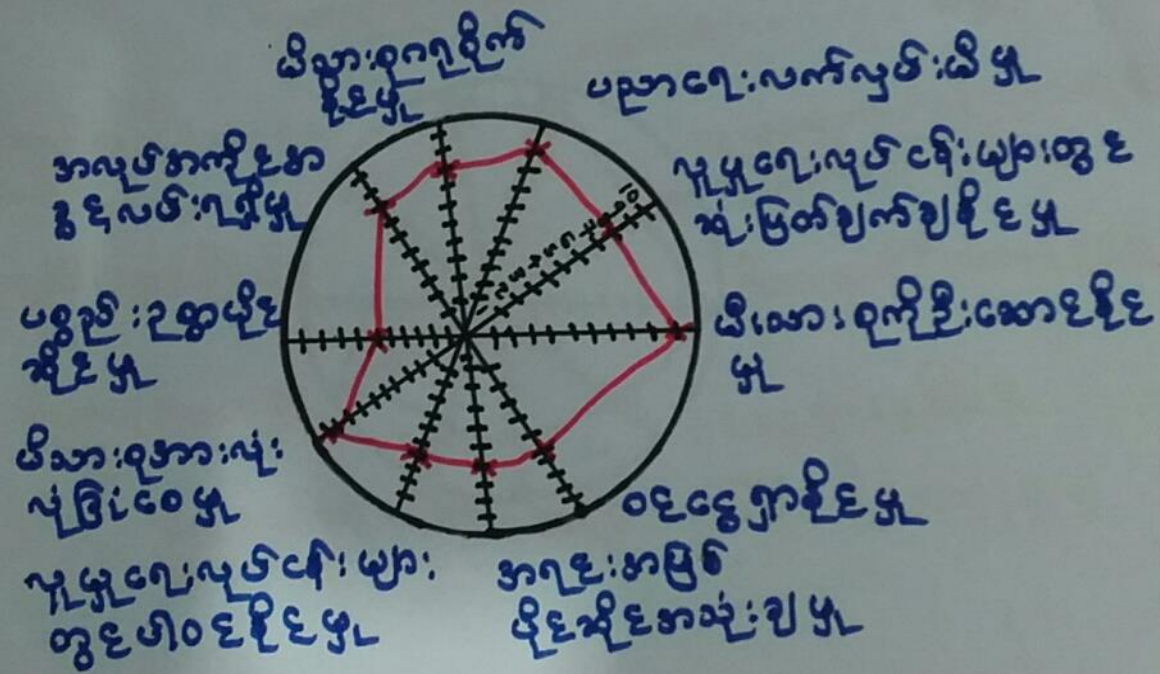 မိသားစုဂရုစိုက်
နိုင်မှု
ပညာရေးလက်လှမ်းမီမှု
လူမှုရေးလုပ်ငန်းများတွင်
ဆုံးဖြတ်ချက်ချနိုင်မှု
မိသားစုကိုဦးဆောင်နိုင်
မှု
ဝင်ငွေရှာနိုင်မှု
အရင်းအမြစ်
ပိုင်ဆိုင်အသုံးချမှု
လူမှုရေးလုပ်ငန်းများ
တွင်ပါဝင်နိုင်မှု
မိသားစုအားလုံး
လုံခြုံဝေမှု
ပစ္စည်းဥစ္စာပိုင်
ဆိုင်မှု
အလုပ်အကိုင်အ
ခွင့်လမ်းရရှိမှု
10